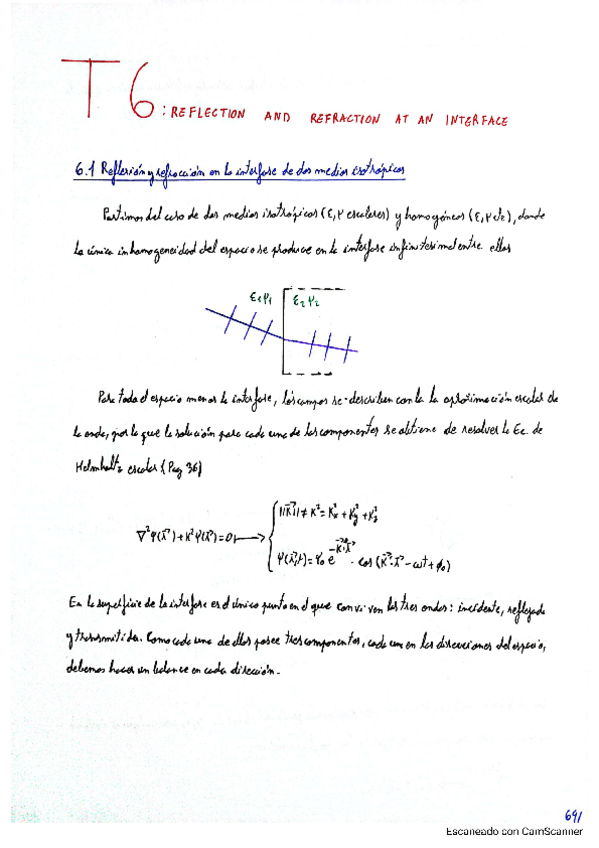 T6: REFLECTION AND REFRACTION AT AN INTERFACE
6.1 Reflexión y refracción en la interfase de dos medios isotrópicos
Partimos del caso de dos medios isotrópicos (ε, μ escalares) y homogéneos (ε, μ cte), donde
la única inhomogeneidad del espacio se produce en la interfase infinitesimal entre ellos
ε₁μ₁ ε₂ μ₂
Para todo el espacio menos la interfase, los campos se describen con la la aproximación escalar de
la onda, por lo que la solución para cada una de las componentes se obtiene de resolver la Ec. de
Helmholtz escalar (Pag 36)
||K⃗|| ≠ K² = Kx² + Ky² + Kz²
∇²Ψ(x⃗) + K²Ψ(x⃗) = 0
Ψ(x⃗,t) = Ψ₀ e · cos(K⃗'·x⃗ - ωt + φ₀)
En la superficie de la interfase es el único punto en el que conviven las tres ondas: incidente, reflejada
y transmitida. Como cada una de ellas posee tres componentes, cada una en las direcciones del espacio,
debemos hacer un balance en cada dirección.
69/
Escaneado con CamScanner